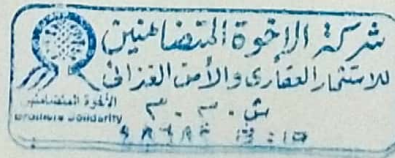 شركة الإخوة المتضامنين
للاستثمار العقاري والأمن الغذائي
الأخوة المتضامنين
Brothers Solidarity
ش.م.م